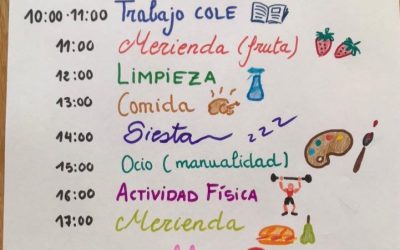 10:00-11:00 Trabajo COLE
11:00 Merienda (fruta)
12:00 LIMPIEZA
13:00 Comida
14:00 Siesta zzz
15:00 Ocio (manualidad)
16:00 ACTIVIDAD FÍSICA
17:00 Merienda